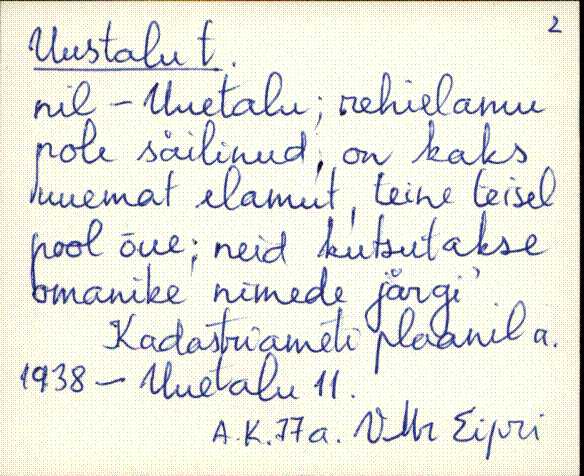 2
Uustalu t.
nil – Uuetalu; rehielamu
pole säilinud, on kaks
uuemat elamut, teine teisel
pool õue; neid kutsutakse
omanike nimede järgi
Kadastriameti plaanil a.
1938 – Uuetalu 11.
A.K. 77a.